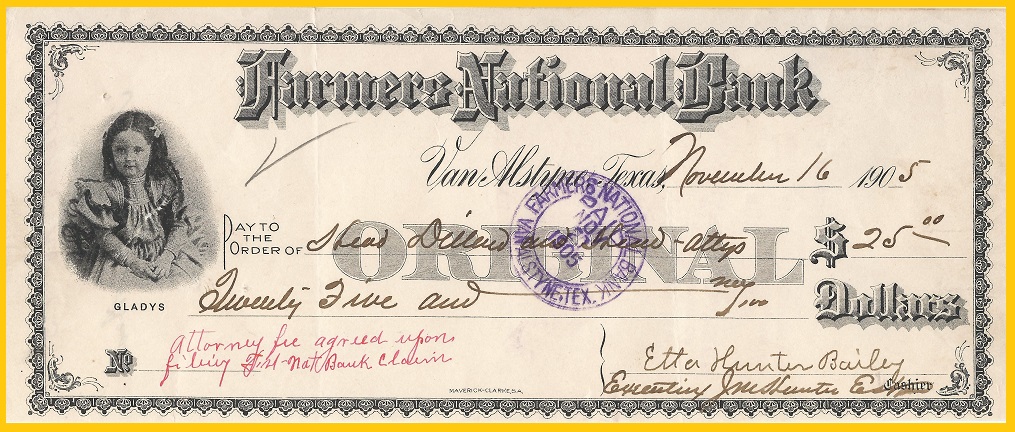 Farmers National Bank
Van Alstyne, Texas, November 16 1905
PAY TO THE ORDER OF Head Dillend and Head - attys $ 25.00
ORIGINAL
Twenty Five and no/100 Dollars
GLADYS
VAN ALSTYNE, TEX. FARMERS NATIONAL BANK
PAID
NOV
1905
No
Attorney fee agreed upon
filing Nat Bank Claim
Etta Hunter Bailey
J M Hunter
Cashier
MAVERICK-CLARKE, S.A.